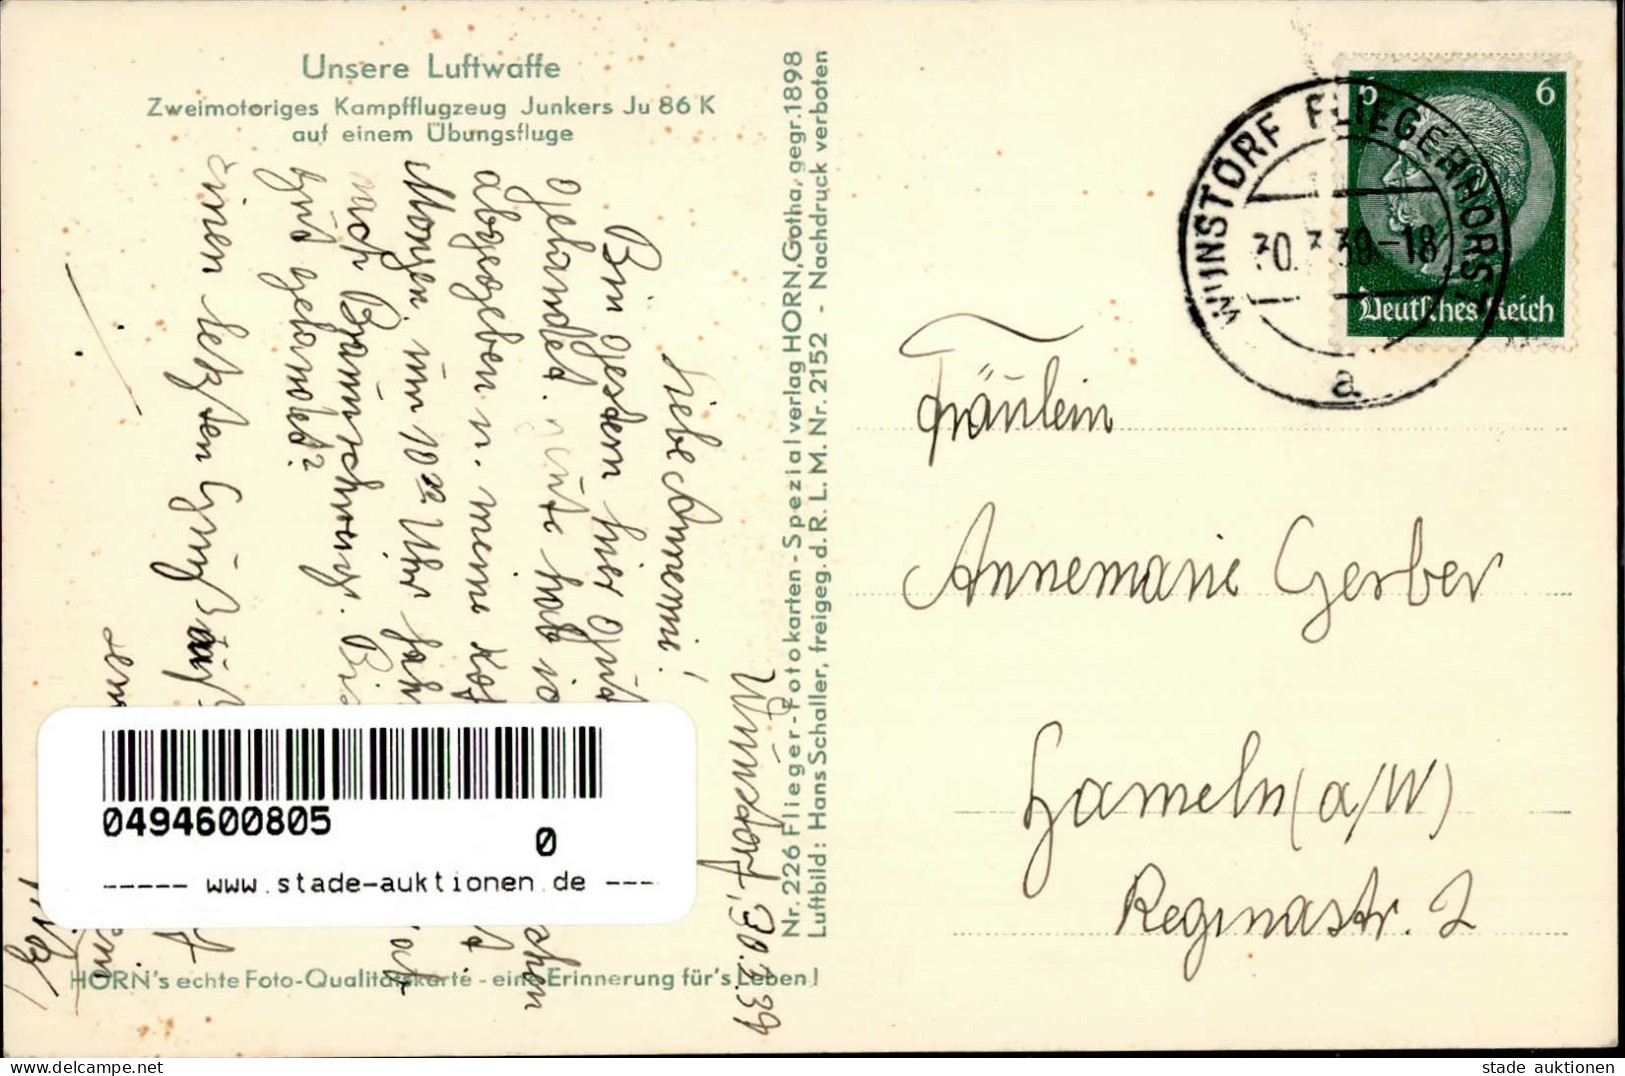 Unsere Luftwaffe
Zweimotoriges Kampfflugzeug Junkers Ju 86 K
auf einem Übungsfluge
Wunstorf, 30.3.39
Liebe Annemi!
Bin gestern hier gut
gelandet. Heute hab ic
chen
abgegeben u. meine
Morgen um 10 22 Uhr fah
nach Braunschweig. Bi
gut gelandet?
einen letzten Gruß auf
Nr. 226 Flieger-Fotokarten - Spezialverlag HORN, Gotha, gegr. 1898
Luftbild: Hans Schaller, freigeg. d. R. L. M. Nr. 2152 - Nachdruck verboten
HORN's echte Foto-Qualitätskarte - eine Erinnerung für's Leben!
WUNSTORF FLIEGERHORST
30.3.39-18
a
6
Deutsches Reich
Fräulein
Annemarie Gerber
Hameln (a/W)
Reginastr. 2
0494600805
0
----- www.stade-auktionen.de ---
stade auktionen
www.delcampe.net
stade auktionen